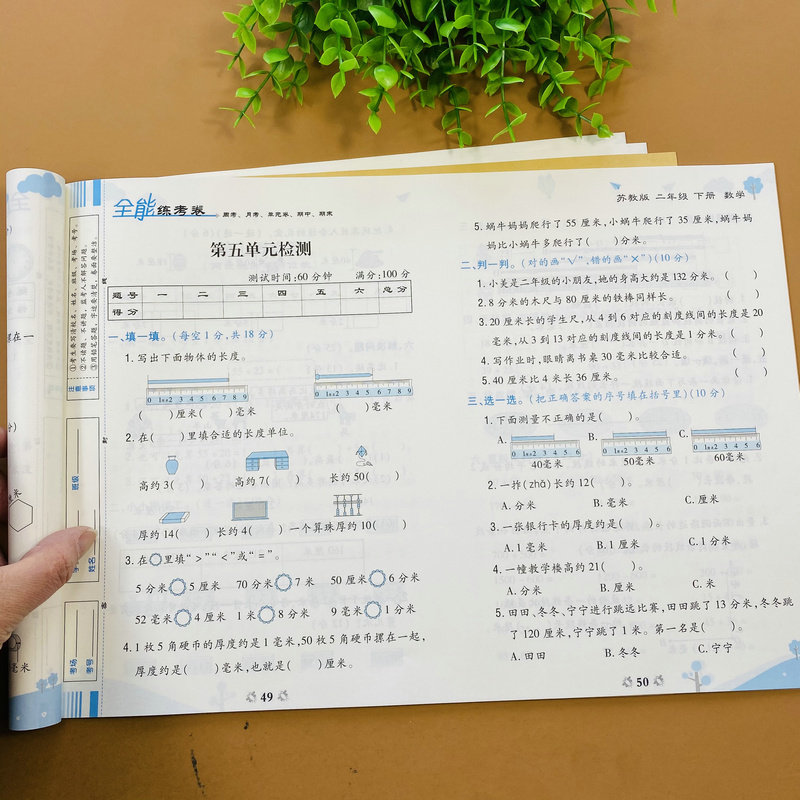 全能练考卷 周考、月考、单元卷、期中、期末
第五单元检测
测试时间:60分钟 满分:100分
题号 一 二 三 四 五 六 总分
得分
一、填一填。(每空1分,共18分)
1. 写出下面物体的长度。
0 1cm2 3 4 5 6 7 8 9
0 1cm2 3 4 5 6
( )厘米( )毫米 ( )毫米
2. 在( )里填合适的长度单位。
高约3( ) 高约7( ) 长约50( )
厚约14( ) 长约4( ) 一个算珠厚约10( )
3. 在○里填“>”“<”或“=”。
5分米○5厘米 70分米○7米 50厘米○6分米
52毫米○4厘米 1米○8分米 9毫米○1分米
4. 1枚5角硬币的厚度约是1毫米,50枚5角硬币摞在一起,
厚度约是( )毫米,也就是( )厘米。
49
苏教版 二年级 下册 数学
5. 蜗牛妈妈爬行了55厘米,小蜗牛爬行了35厘米,蜗牛妈
妈比小蜗牛多爬行了( )分米。
二、判一判。(对的画“✓”,错的画“×”)(10分)
1. 小美是二年级的小朋友,她的身高大约是132分米。 ( )
2. 8分米的木尺与80厘米的铁棒同样长。 ( )
3. 20厘米长的学生尺,从4到6对应的刻度线间的长度是20
毫米,从3到13对应的刻度线间的长度是1分米。 ( )
4. 写作业时,眼睛离书桌30毫米比较合适。 ( )
5. 40厘米比4米长36厘米。 ( )
三、选一选。(把正确答案的序号填在括号里)(10分)
1. 下面测量不正确的是( )。
A. B. C.
40毫米 50毫米 60毫米
2. 一拃(zhǎ)长约12( )。
A. 分米 B. 毫米 C. 厘米
3. 一张银行卡的厚度约是( )。
A. 1毫米 B. 1厘米 C. 1分米
4. 一幢教学楼高约21( )。
A. 分米 B. 厘米 C. 米
5. 田田、冬冬、宁宁进行跳远比赛,田田跳了13分米,冬冬跳
了120厘米,宁宁跳了1米。第一名是( )。
A. 田田 B. 冬冬 C. 宁宁
50
注意事项
班级
姓名
考场
考号